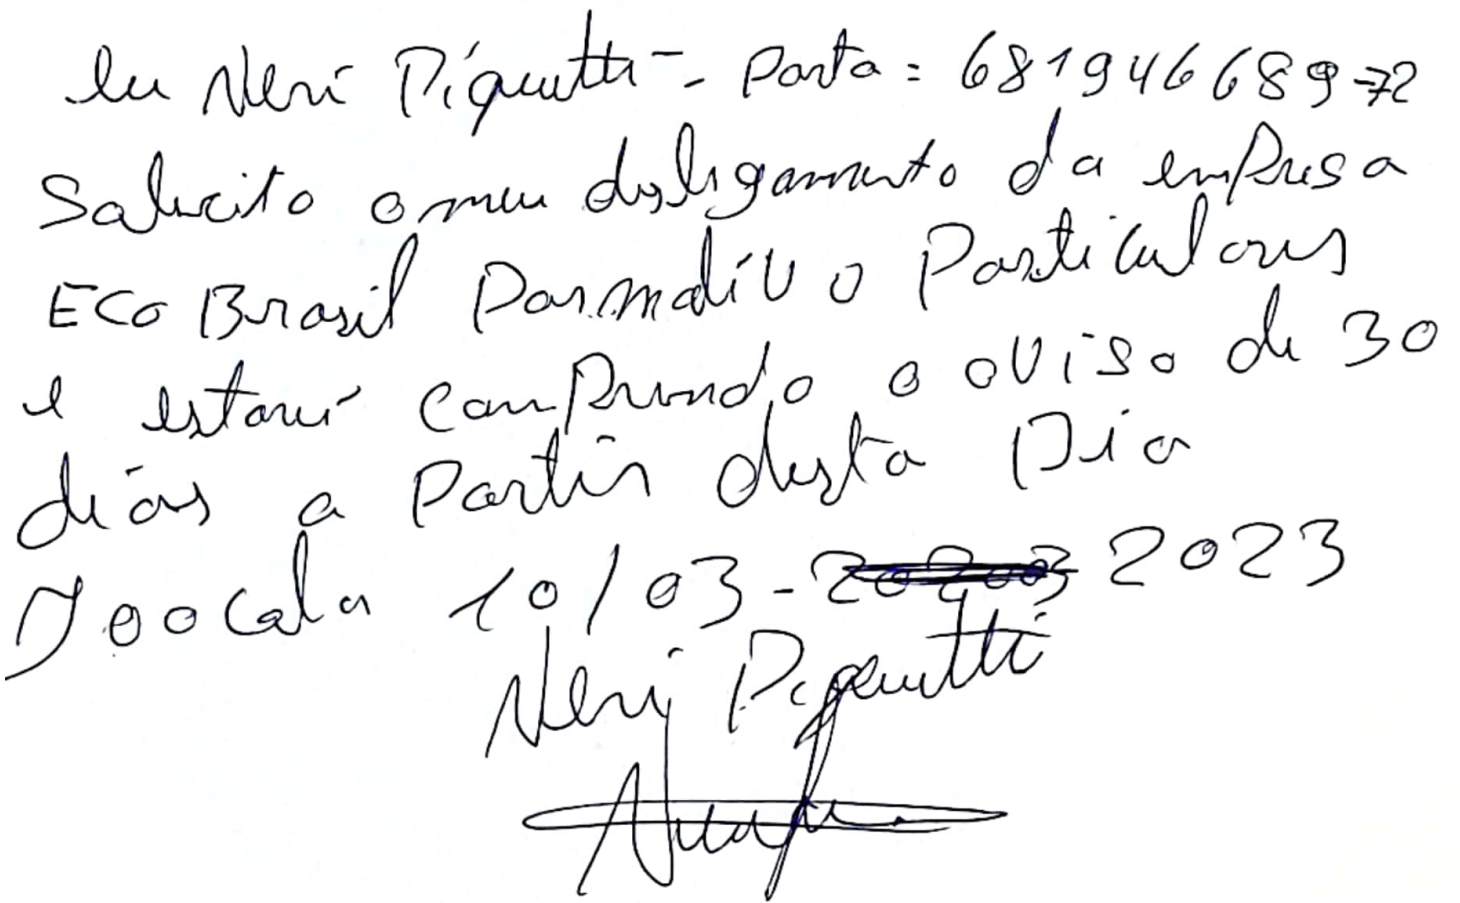 Eu Neri Piquetti - Porta = 681946689-72
Solicito o meu desligamento da empresa
ECO Brasil por motivo Particulares
e estarei comprindo o aviso de 30
dias a Partir desta Dia
10/03-2023
Neri Piquetti